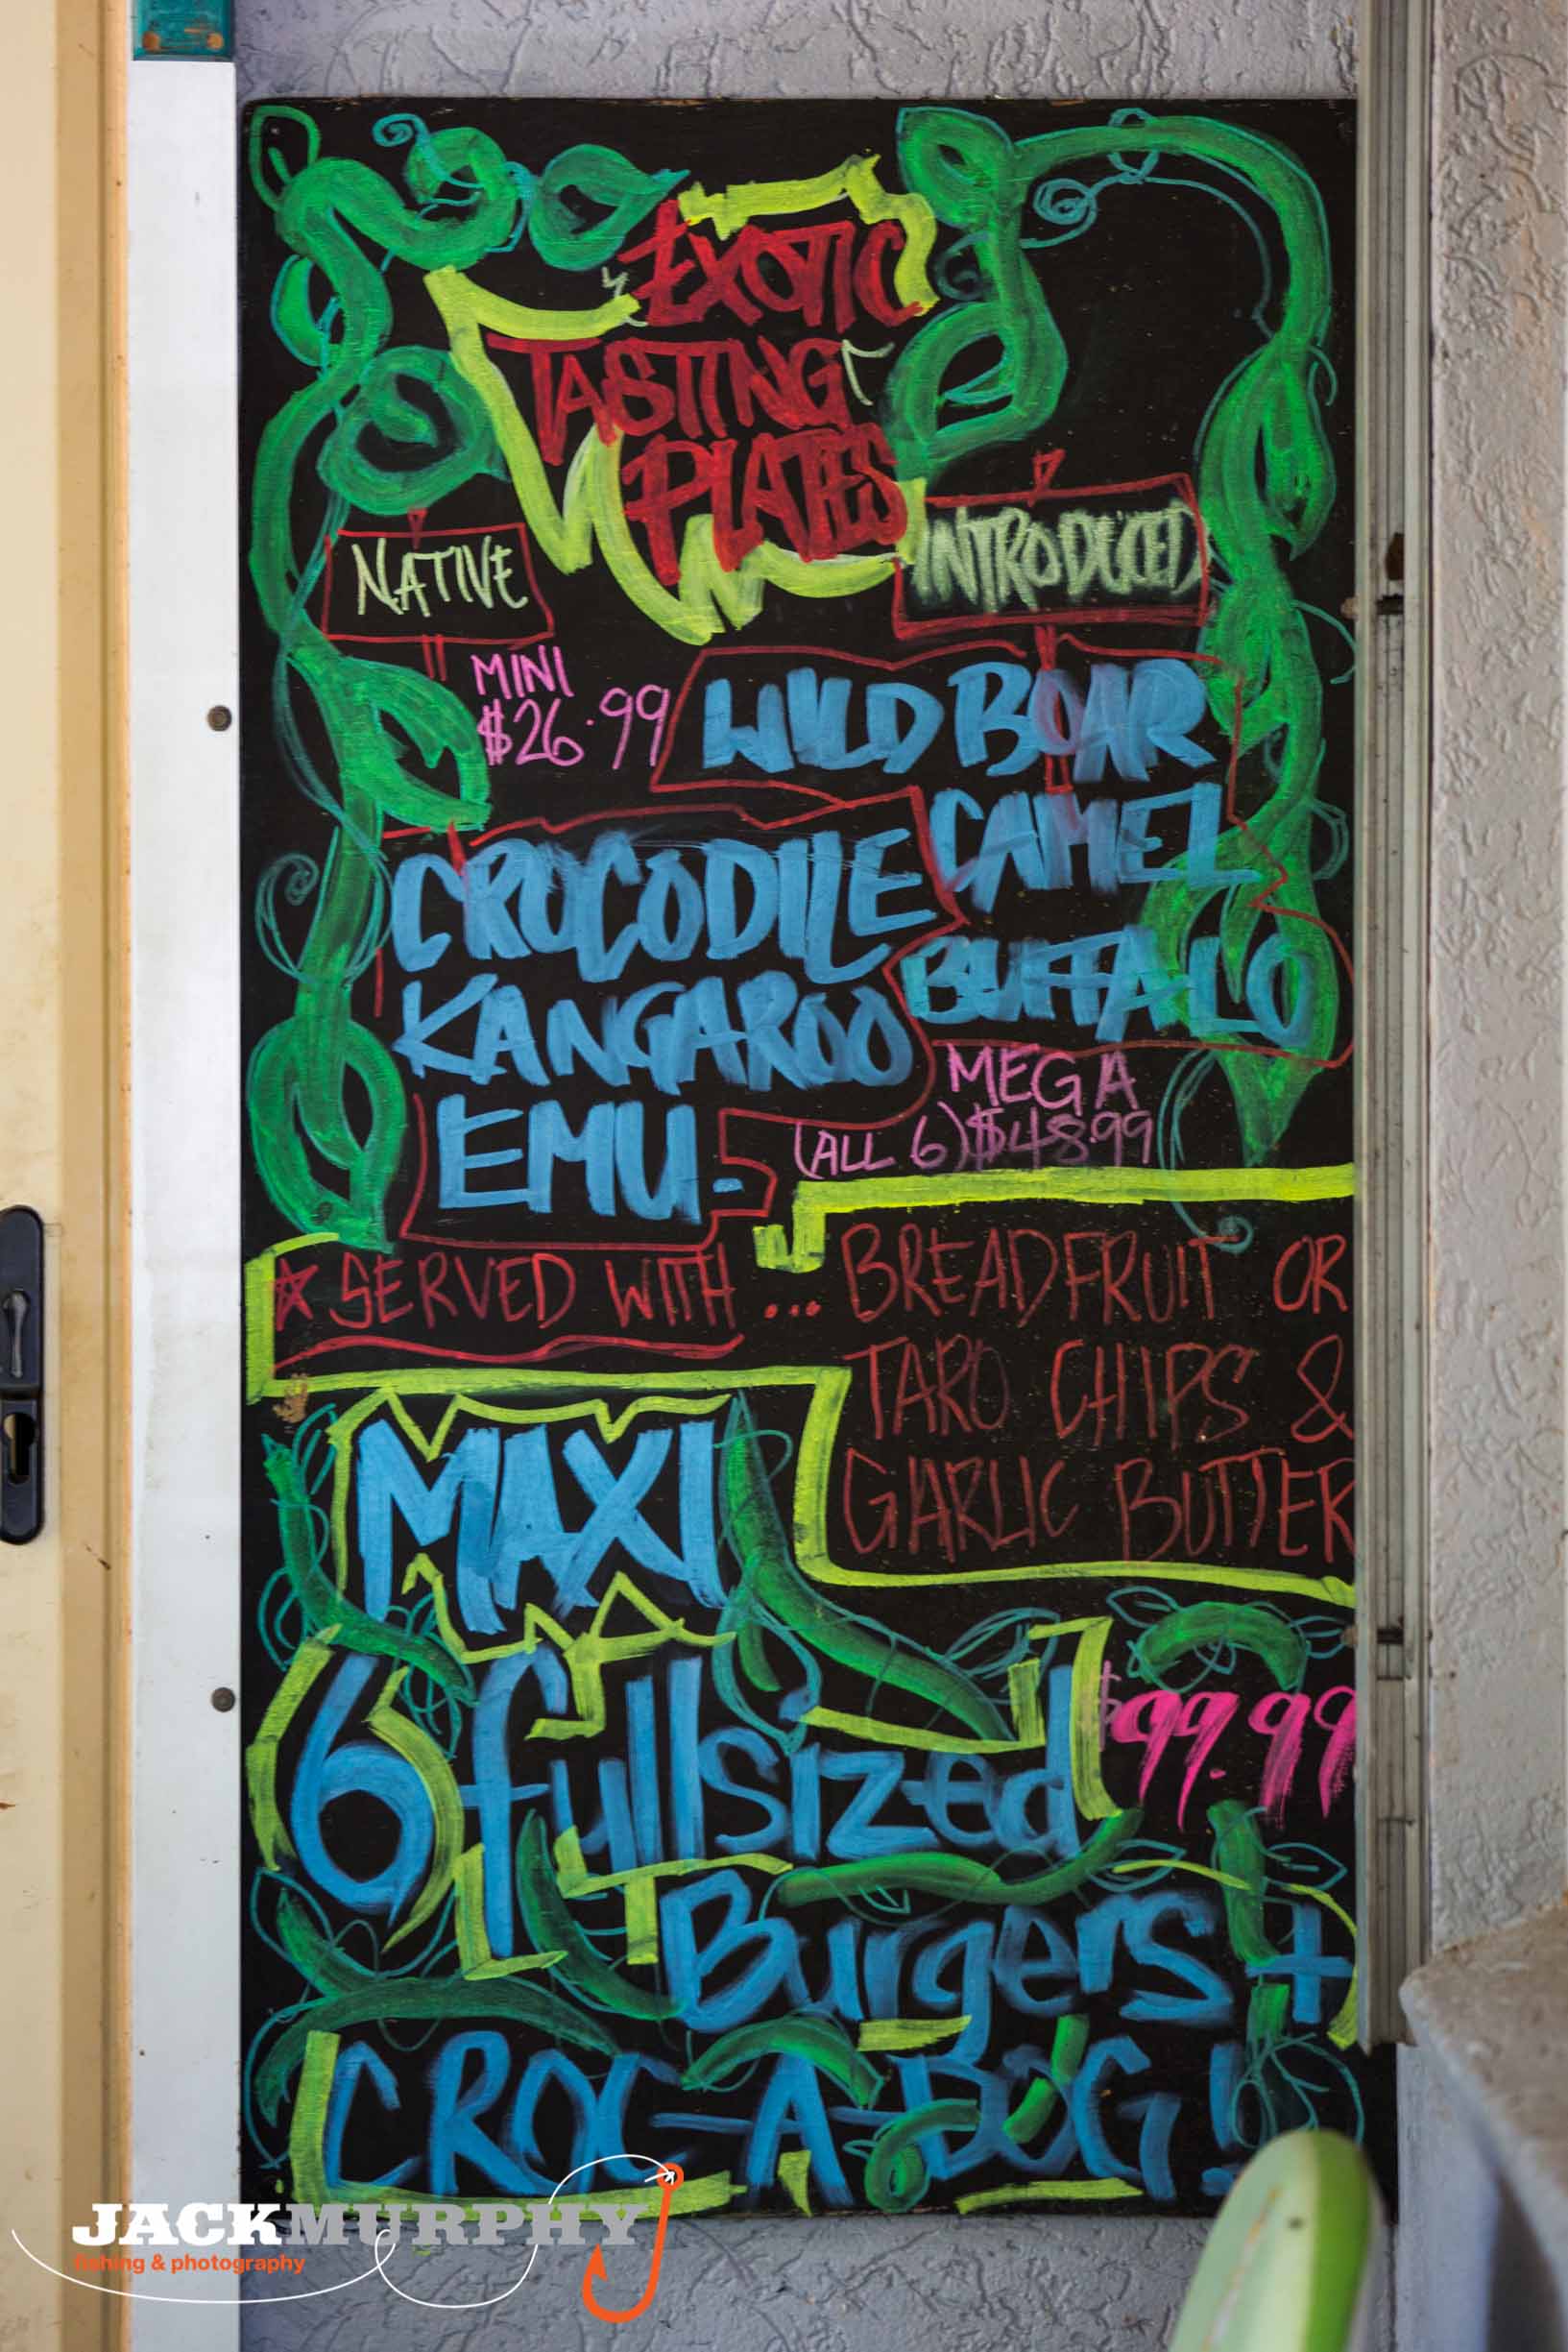 EXOTIC
TASTING
PLATES
NATIVE
INTRODUCED
MINI
$26.99
WILD BOAR
CAMEL
BUFFALO
CROCODILE
KANGAROO
EMU.
MEGA
(ALL 6) $48.99
☆ SERVED WITH ... BREADFRUIT OR
TARO CHIPS &
GARLIC BUTTER
MAXI
6 fullsized
$99.99
Burgers +
CROC-A-BOG!
JACKMURPHY
fishing & photography